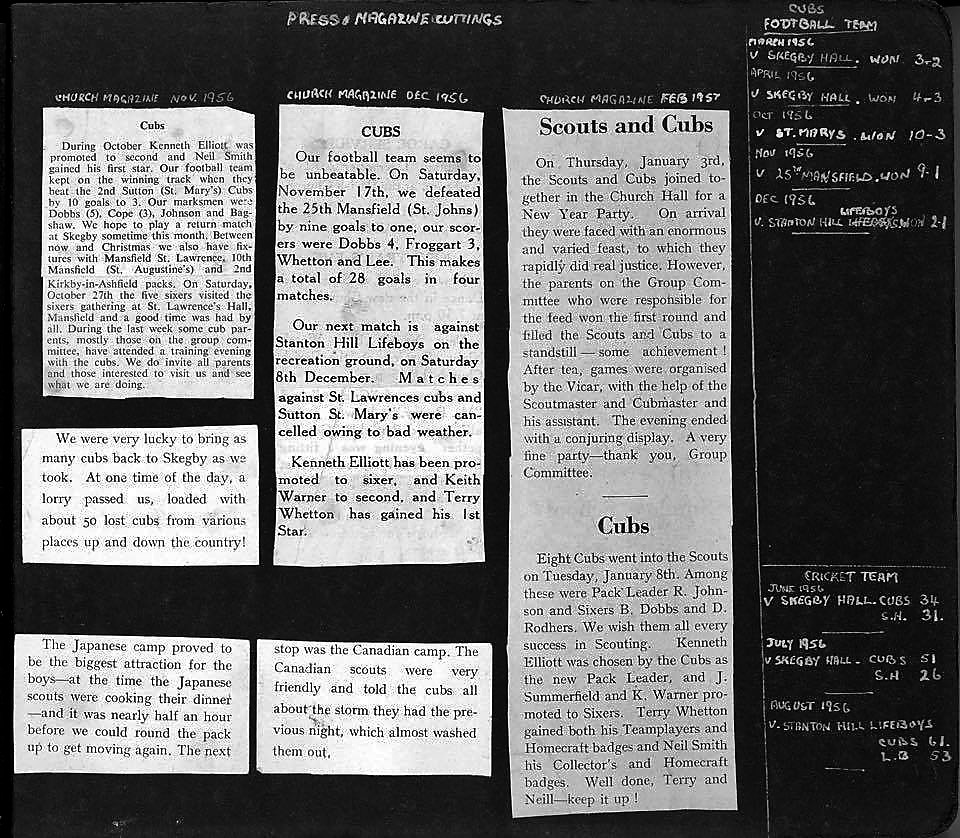 PRESS & MAGAZINE CUTTINGS
CHURCH MAGAZINE NOV. 1956
Cubs
During October Kenneth Elliott was
promoted to second and Neil Smith
gained his first star. Our football team
kept on the winning track when they
beat the 2nd Sutton (St. Mary's) Cubs
by 10 goals to 3. Our marksmen were
Dobbs (5), Cope (3), Johnson and Bag-
shaw. We hope to play a return match
at Skegby sometime this month. Between
now and Christmas we also have fix-
tures with Mansfield St. Lawrence, 10th
Mansfield (St. Augustine's) and 2nd
Kirkby-in-Ashfield packs. On Saturday,
October 27th the five sixers visited the
sixers gathering at St. Lawrence's Hall,
Mansfield and a good time was had by
all. During the last week some cub par-
ents, mostly those on the group com-
mittee, have attended a training evening
with the cubs. We do invite all parents
and those interested to visit us and see
what we are doing.
We were very lucky to bring as
many cubs back to Skegby as we
took. At one time of the day, a
lorry passed us, loaded with
about 50 lost cubs from various
places up and down the country!
The Japanese camp proved to
be the biggest attraction for the
boys—at the time the Japanese
scouts were cooking their dinner
—and it was nearly half an hour
before we could round the pack
up to get moving again. The next
CHURCH MAGAZINE DEC 1956
CUBS
Our football team seems to
be unbeatable. On Saturday,
November 17th, we defeated
the 25th Mansfield (St. Johns)
by nine goals to one, our scor-
ers were Dobbs 4, Froggart 3,
Whetton and Lee. This makes
a total of 28 goals in four
matches.
Our next match is against
Stanton Hill Lifeboys on the
recreation ground, on Saturday
8th December. Matches
against St. Lawrences cubs and
Sutton St. Mary's were can-
celled owing to bad weather.
Kenneth Elliott has been pro-
moted to sixer, and Keith
Warner to second, and Terry
Whetton has gained his 1st
Star.
stop was the Canadian camp. The
Canadian scouts were very
friendly and told the cubs all
about the storm they had the pre-
vious night, which almost washed
them out.
CHURCH MAGAZINE FEB 1957
Scouts and Cubs
On Thursday, January 3rd,
the Scouts and Cubs joined to-
gether in the Church Hall for a
New Year Party. On arrival
they were faced with an enormous
and varied feast, to which they
rapidly did real justice. However,
the parents on the Group Com-
mittee who were responsible for
the feed won the first round and
filled the Scouts and Cubs to a
standstill — some achievement !
After tea, games were organised
by the Vicar, with the help of the
Scoutmaster and Cubmaster and
his assistant. The evening ended
with a conjuring display. A very
fine party—thank you, Group
Committee.
Cubs
Eight Cubs went into the Scouts
on Tuesday, January 8th. Among
these were Pack Leader R. John-
son and Sixers B. Dobbs and D.
Rodhers. We wish them all every
success in Scouting. Kenneth
Elliott was chosen by the Cubs as
the new Pack Leader, and J.
Summerfield and K. Warner pro-
moted to Sixers. Terry Whetton
gained both his Teamplayers and
Homecraft badges and Neil Smith
his Collector's and Homecraft
badges. Well done, Terry and
Neill—keep it up !
CUBS
FOOTBALL TEAM
MARCH 1956
V SKEGBY HALL. WON 3-2
APRIL 1956
V SKEGBY HALL. WON 4-3
OCT 1956
V ST. MARYS. WON 10-3
NOV 1956
V 25TH MANSFIELD. WON 9-1
DEC 1956
LIFEBOYS
V. STANTON HILL WON 2-1
CRICKET TEAM
JUNE 1956
V SKEGBY HALL. CUBS 34
S.H. 31.
JULY 1956
V SKEGBY HALL. CUBS 51
S.H 26
AUGUST 1956
V. STANTON HILL LIFEBOYS
CUBS 61.
L.B 53